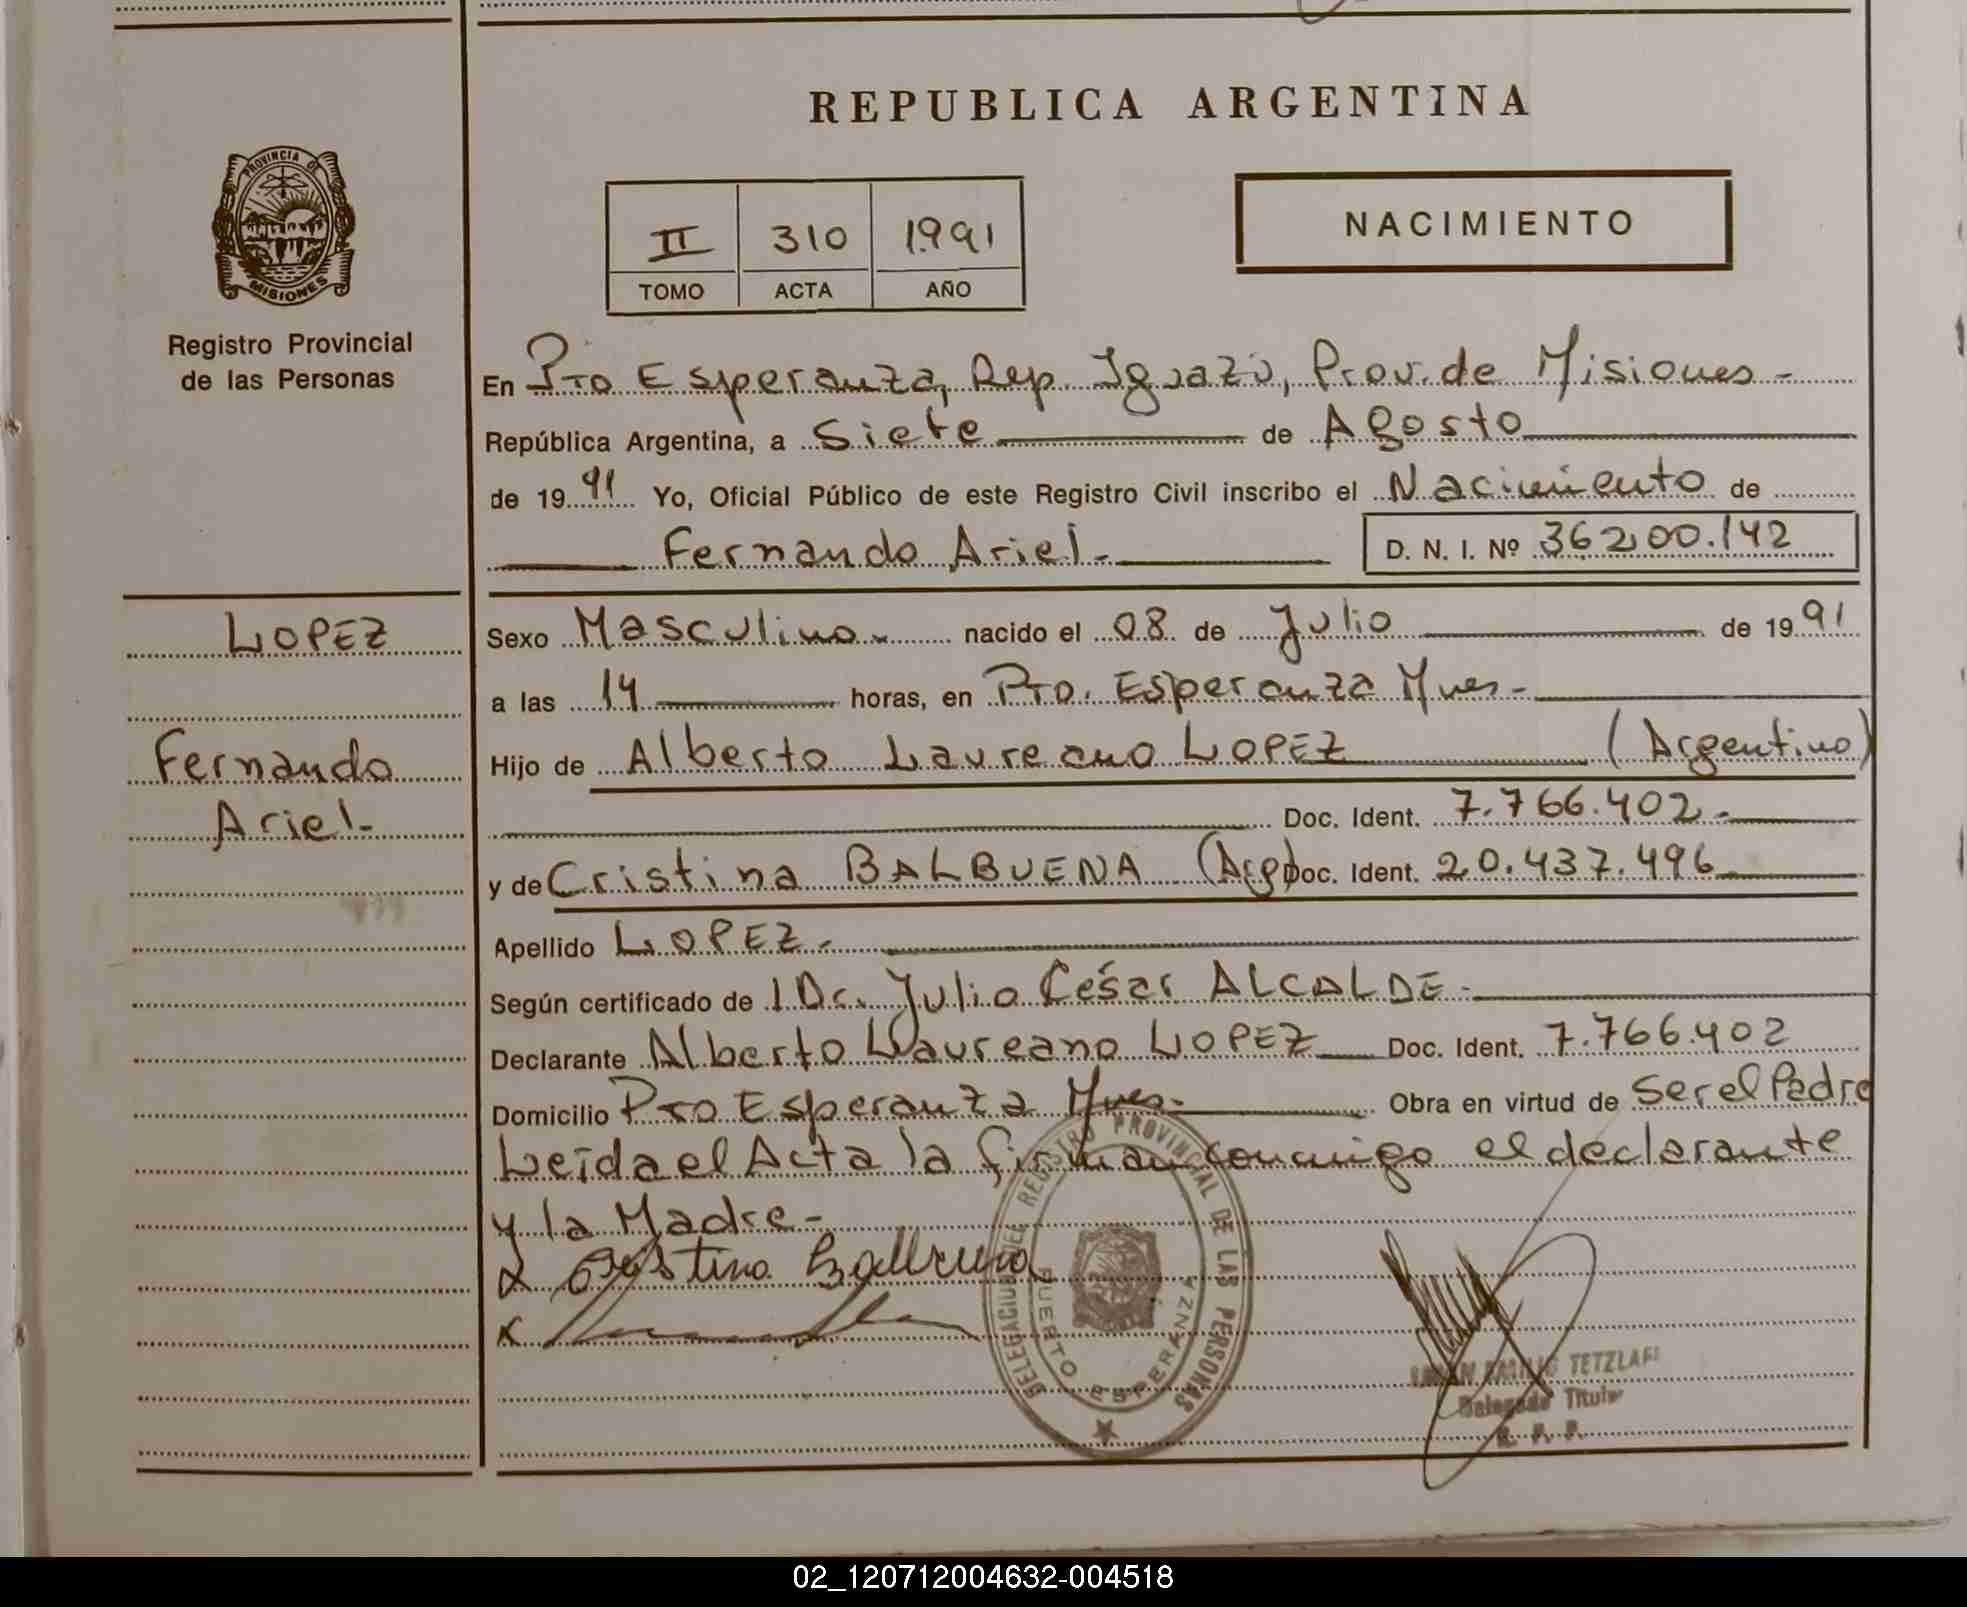 REPUBLICA ARGENTINA
PROVINCIA DE
MISIONES
Registro Provincial
de las Personas
II 310 1991
TOMO ACTA AÑO
NACIMIENTO
En Pto Esperanza, Dep. Iguazú, Prov. de Misiones -
República Argentina, a Siete de Agosto
de 1991 Yo, Oficial Público de este Registro Civil inscribo el Nacimiento de
Fernando Ariel.-
D. N. I. Nº 36200.142
LOPEZ
Fernando
Ariel-
Sexo Masculino.- nacido el 08 de Julio de 1991
a las 14 horas, en Pto. Esperanza Mnes-
Hijo de Alberto Laureano LOPEZ (Argentino)
Doc. Ident. 7.766.402.-
y de Cristina BALBUENA (Arg) Doc. Ident. 20.437.496
Apellido LOPEZ.-
Según certificado de l Dr. Julio César ALCALDE.-
Declarante Alberto Laureano LOPEZ Doc. Ident. 7.766.402
Domicilio Pto Esperanza Mnes.- Obra en virtud de Ser el Padre
Leída el Acta la firman conmigo el declarante
y la Madre-
x Cristina Balbuena
x
DELEGACION DEL REGISTRO PROVINCIAL DE LAS PERSONAS
PUERTO ESPERANZA
TETZLAFF
Delegado Titular
R. P. P.
02_120712004632-004518